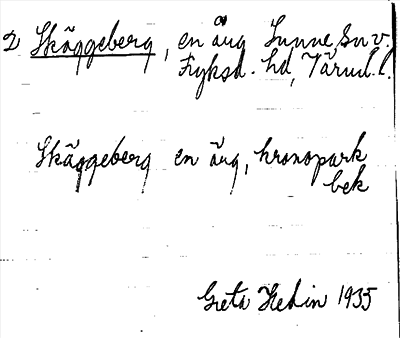 2 Skäggeberg, en äng Sunne sn v.
Fryksd. hd, Värml. l.
Skäggeberg en äng, kronopark
bek
Greta Hedin 1935